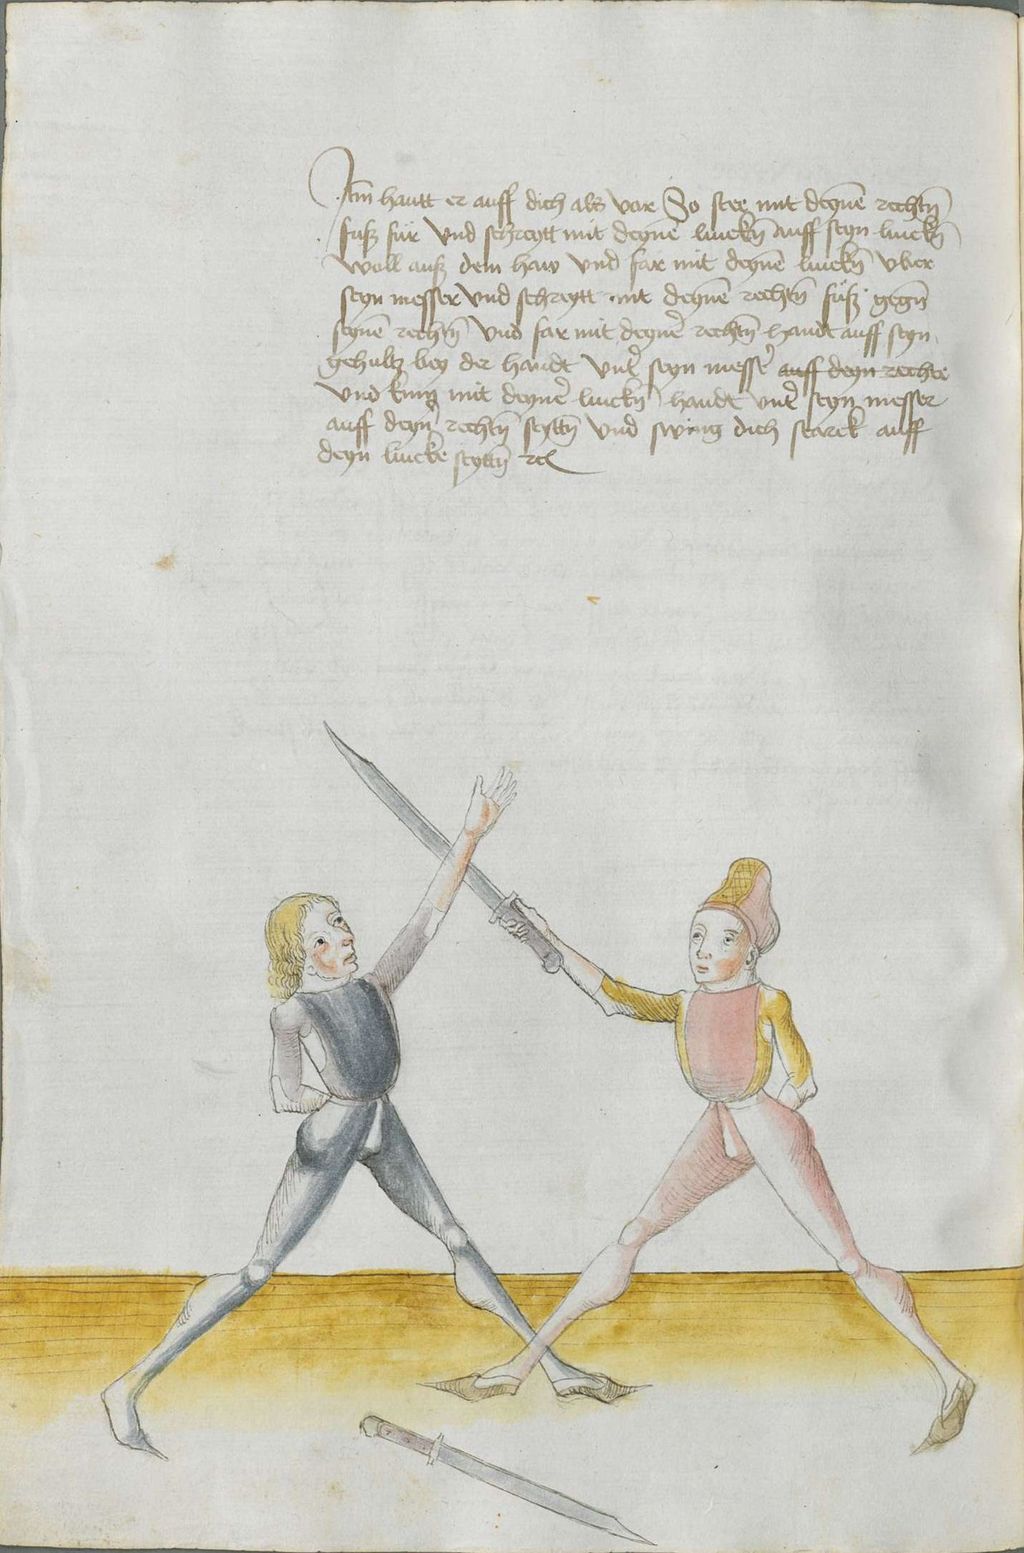 Jtm̄ hautt er auff dich als vor So stee mit deynē rechtn̄
fuß für vnd schreytt mit deynē linckn̄ auff seyn linckn̄
woll auß dem haw vnd far mit deynē linckn̄ vber
seyn messer vnd schreytt mit deynē rechtn̄ füß gegn̄
seynē rechtn̄ vnd far mit deyner̄ rechtn̄ handt auff seyn
gehultz bey der handt vnter̄ seyn messer̄ auff deyn rechte
vnd kum mit deyner̄ linckn̄ handt vnter̄ seyn messer
auff deyn̄ rechtn̄ seyttn̄ vnd swing dich starck auff
deyn lincke seyttn̄ rc